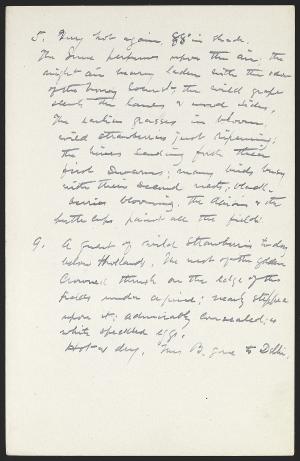 5. Very hot again, 88° in shade.
The June perfumes upon the air; the
night air heavy laden with the odor
of the honey locust, the wild grape
scents the lanes & wood sides,
The earlier grasses in bloom,
wild strawberries just ripening;
the hives sending forth their
first swarms; many birds busy
with their second nests; black-
berries blooming, the daisies & the
buttercups paint all the fields.
9. A quart of wild strawberries to-day
below Highlands. The nest of the golden
crowned thrush on the edge of the
fields under a pine; nearly stepped
upon it; admirably concealed;
white speckled eggs.
Hot day. Mrs B. gone to Delhi.